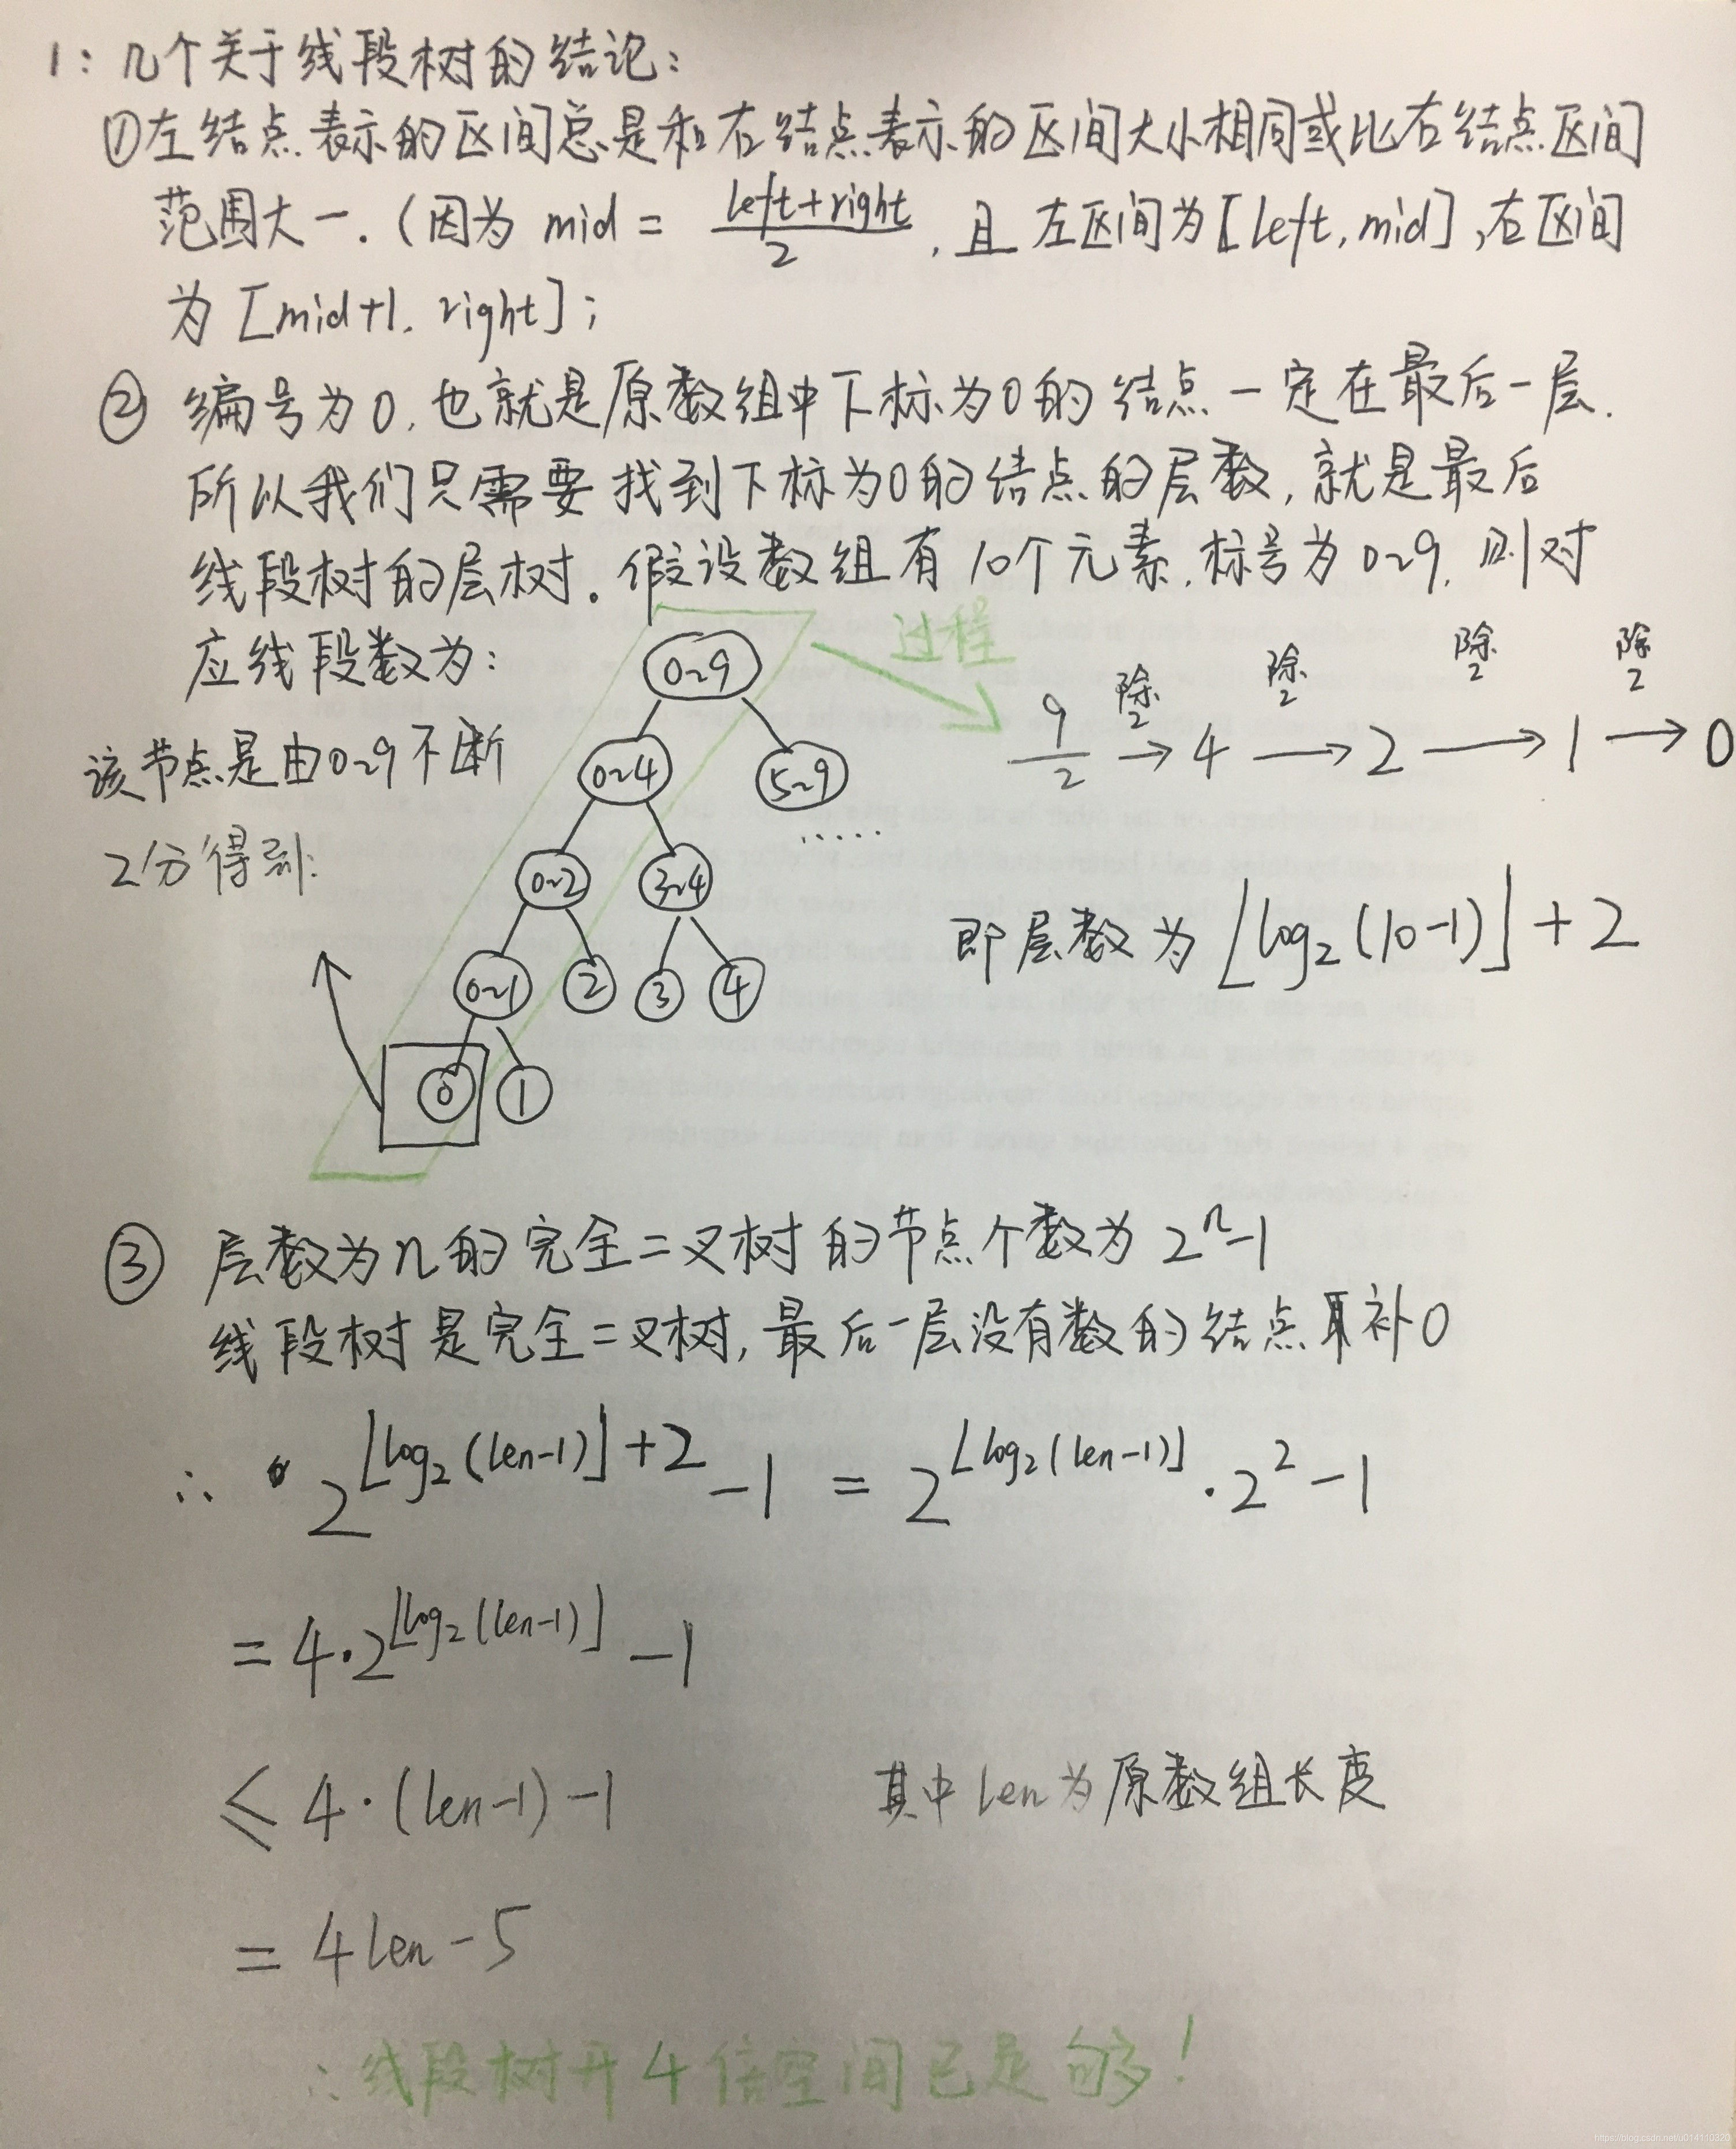 1: 几个关于线段树的结论:
①左结点表示的区间总是和右结点表示的区间大小相同或比右结点区间
范围大一.(因为 mid = (left+right)/2 , 且 左区间为[left, mid],右区间
为 [mid+1, right];
② 编号为0,也就是原数组中下标为0的 结点一定在最后一层.
所以我们只需要找到下标为0的结点的层数,就是最后
线段树的层树.假设数组有 10个元素,标号为0~9, 则对
应线段数为:
过程
该节点是由0~9不断
2分得到:
0~9
0~4 5~9
......
0~2 3~4
0~1 2 3 4
0 1
除2 除2 除2 除2
9/2 → 4 → 2 → 1 → 0
即层数为 ⌊log₂(10-1)⌋+2
③ 层数为n的完全二叉树的节点个数为 2^n-1
线段树是完全二叉树,最后一层没有数的结点补0
∴ 2^(⌊log₂(len-1)⌋+2) -1 = 2^⌊log₂(len-1)⌋ · 2² -1
= 4·2^⌊log₂(len-1)⌋ -1
≤ 4·(len-1)-1 其中len为原数组长度
= 4len-5
∴线段树开4倍空间已足够!
https://blog.csdn.net/u014110320